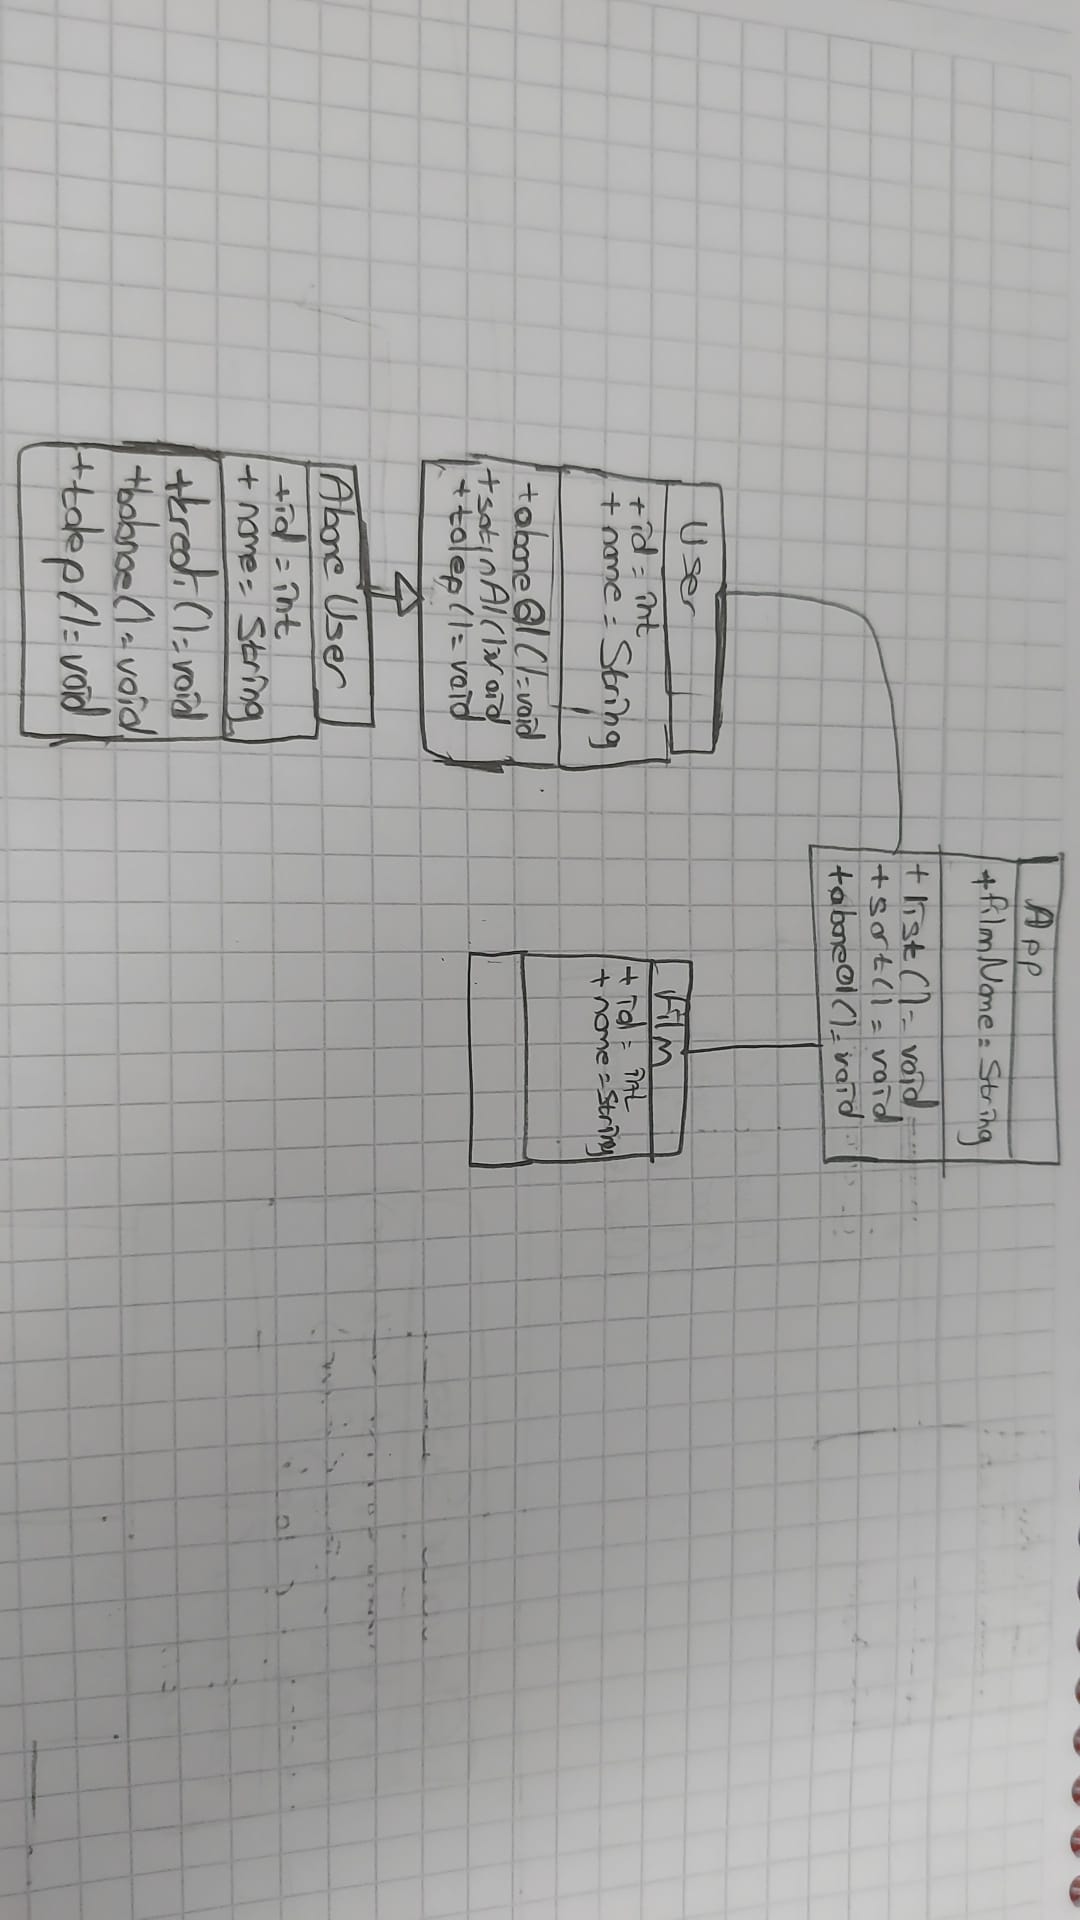 App
+filmName = String
+list() = void
+sort() = void
+aboneOl() = void
User
+id = int
+name = String
+aboneOl() = void
+satınAl() = void
+talep() = void
Film
+id = int
+name = String
Abone User
+id = int
+name = String
+kredi() = void
+balance() = void
+talep() = void